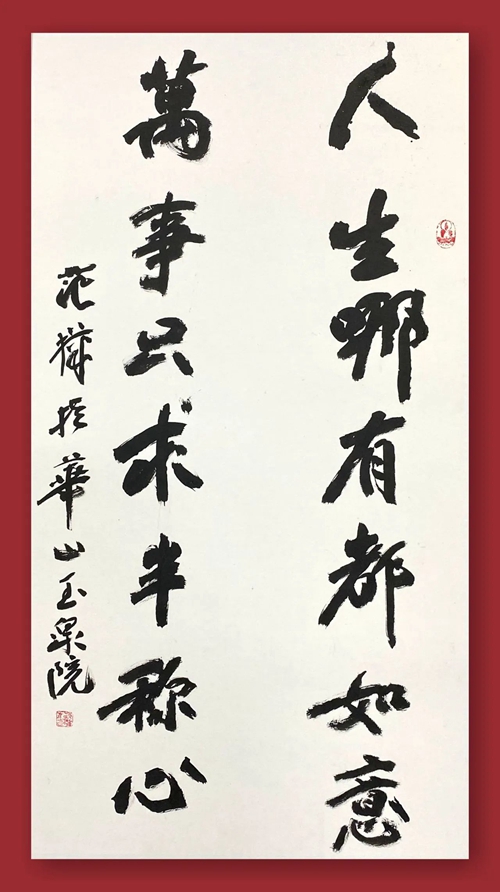 人生哪有都如意
萬事只求半称心
范於華山玉泉院